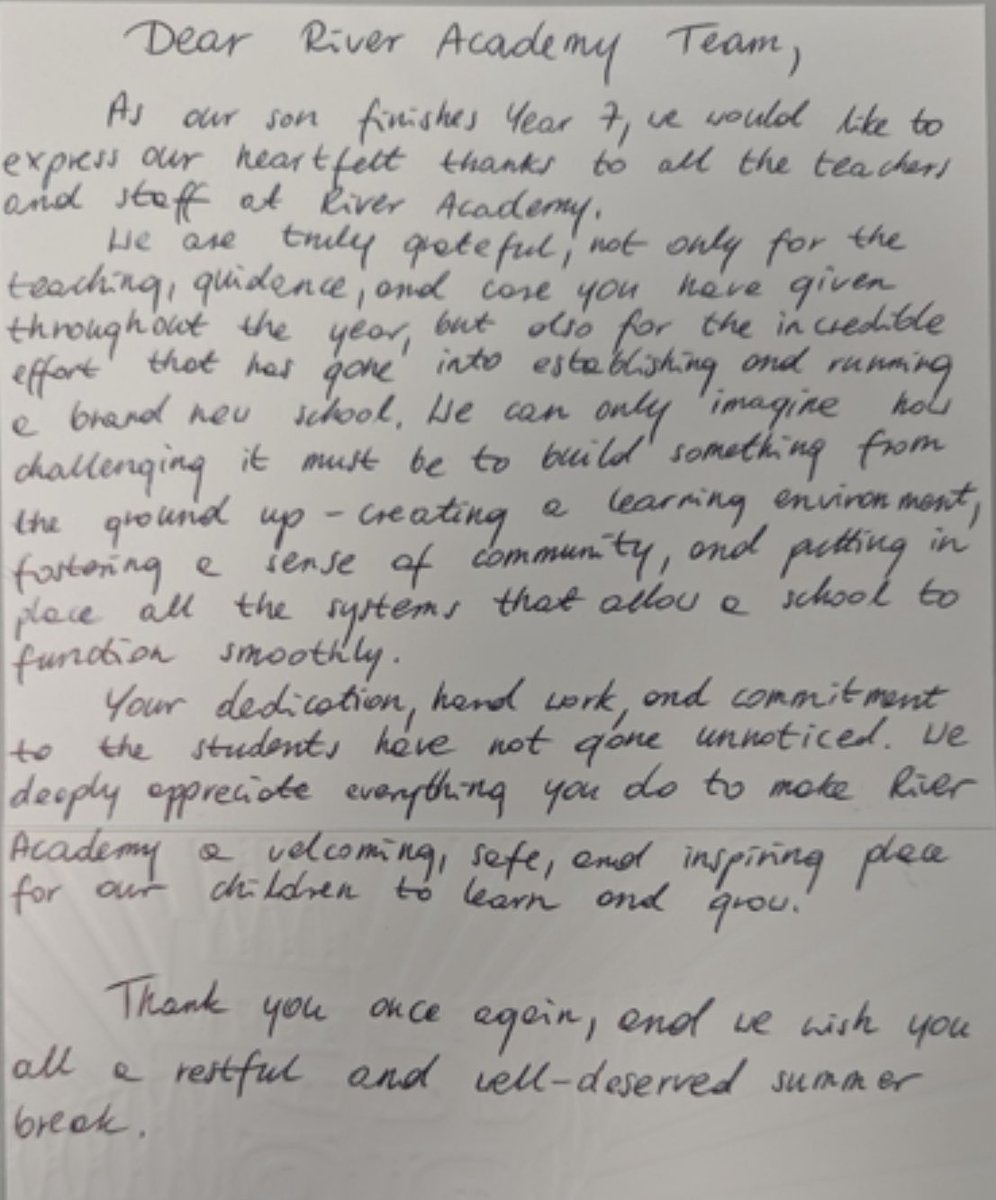 Dear River Academy Team,
As our son finishes Year 7, we would like to
express our heartfelt thanks to all the teachers
and staff at River Academy.
We are truly grateful, not only for the
teaching, guidence, and care you have given
throughout the year, but also for the incredible
effort that has gone into establishing and running
a brand new school. We can only imagine how
challenging it must be to build something from
the ground up - creating a learning environment,
fostering a sense of community, and putting in
place all the systems that allow a school to
function smoothly.
Your dedication, hard work, and commitment
to the students have not gone unnoticed. We
deeply appreciate everything you do to make River
Academy a welcoming, safe, and inspiring place
for our children to learn and grow.
Thank you once again, and we wish you
all a restful and well-deserved summer
break.